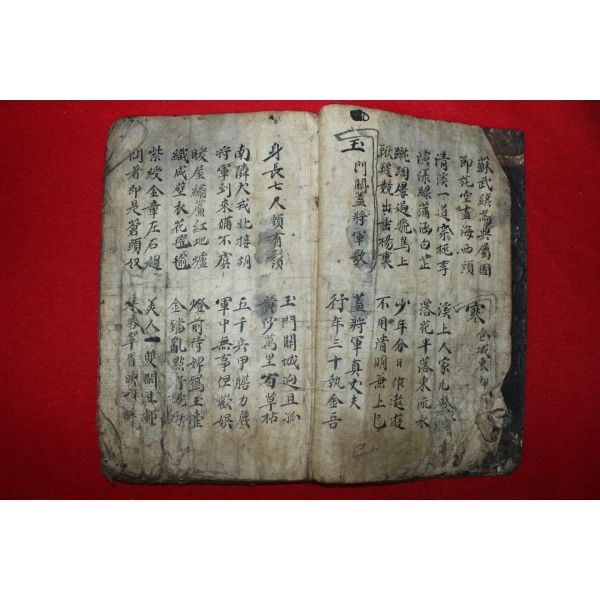 蘇武纔爲典屬國
節旄空盡海西頭
寒食城東即
清溪一道穿桃李 溪上人家凡幾
演漾綠蒲涵白芷 落花半落東流水
蹴踘屢過飛鳥上 少年分日作遨遊
鞦韆競出垂楊裏 不用清明兼上巳
玉門關蓋將軍歌 蓋將軍真丈夫
行年三十執金吾
身長七尺頗有鬚 玉門關城迥且孤
黃沙萬里百草枯
南隣犬戎北接胡 五千兵甲膽力麤
將軍到來備不虞 軍中無事但歡娛
暖屋繡簾紅地爐 燈前侍婢瀉玉壺
織成壁衣花氍毹 金鐺亂點野
紫綬金章左右趨 美人一雙閑且都
問着即是蒼頭奴 朱唇翠眉映